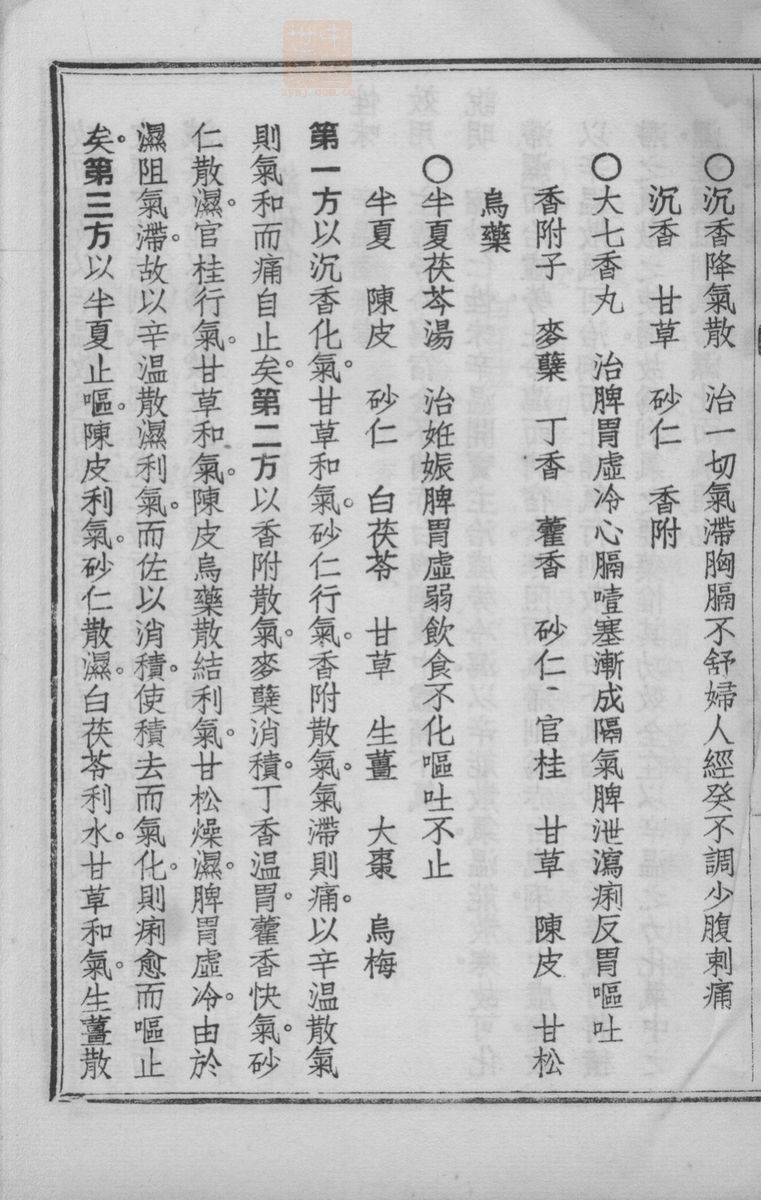 〇沉香降氣散　治一切氣滯胸膈不舒婦人經癸不調少腹刺痛
沉香　甘草　砂仁　香附
〇大七香丸　治脾胃虛冷心膈噎塞漸成隔氣脾泄瀉痢反胃嘔吐
香附子　麥櫱　丁香　藿香　砂仁、官桂　甘草　陳皮　甘松
烏藥
〇半夏茯苓湯　治姙娠脾胃虛弱飲食不化嘔吐不止
半夏　陳皮　砂仁　白茯苓　甘草　生薑　大棗　烏梅
第一方以沉香化氣。甘草和氣。砂仁行氣。香附散氣。氣滯則痛。以辛溫散氣
則氣和而痛自止矣。第二方以香附散氣。麥櫱消積。丁香溫胃。藿香快氣。砂
仁散濕。官桂行氣。甘草和氣。陳皮烏藥散結利氣。甘松燥濕。脾胃虛冷。由於
濕阻氣滯。故以辛溫散濕利氣。而佐以消積。使積去而氣化。則痢愈而嘔止
矣。第三方以半夏止嘔。陳皮利氣。砂仁散濕。白茯苓利水。甘草和氣。生薑散